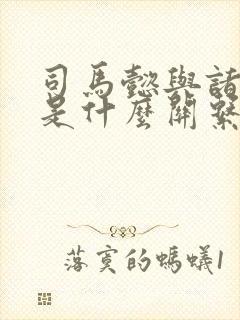 司馬懿與諸
是什麼關繫
落寞的螞蟻1